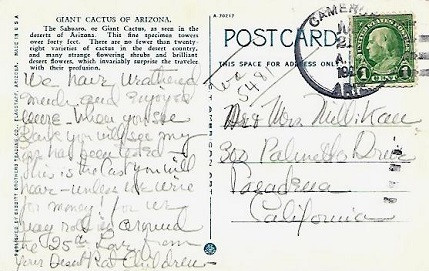 GIANT CACTUS OF ARIZONA.
The Sahuaro, or Giant Cactus, as seen in the
deserts of Arizona. This fine specimen towers
over forty feet. There are no fewer than twenty-
eight varieties of cactus in the desert country,
and many strange flowering shrubs and brilliant
desert flowers, which invariably surprise the traveler
with their profusion.
We have weathered
much and enjoyed
more - When you see
you will see my
has been tested -
this is the last you will
have - unless we wire
for money! for we
may roll in around
the 25th Love from
Your Desert Rat Children -
A 70217
POSTCARD
THIS SPACE FOR ADDRESS ONLY
CAMERON
ARIZ
UNITED STATES POSTAGE
1 CENT 1
Mrs
Palmetto Drive
Pasadena
California